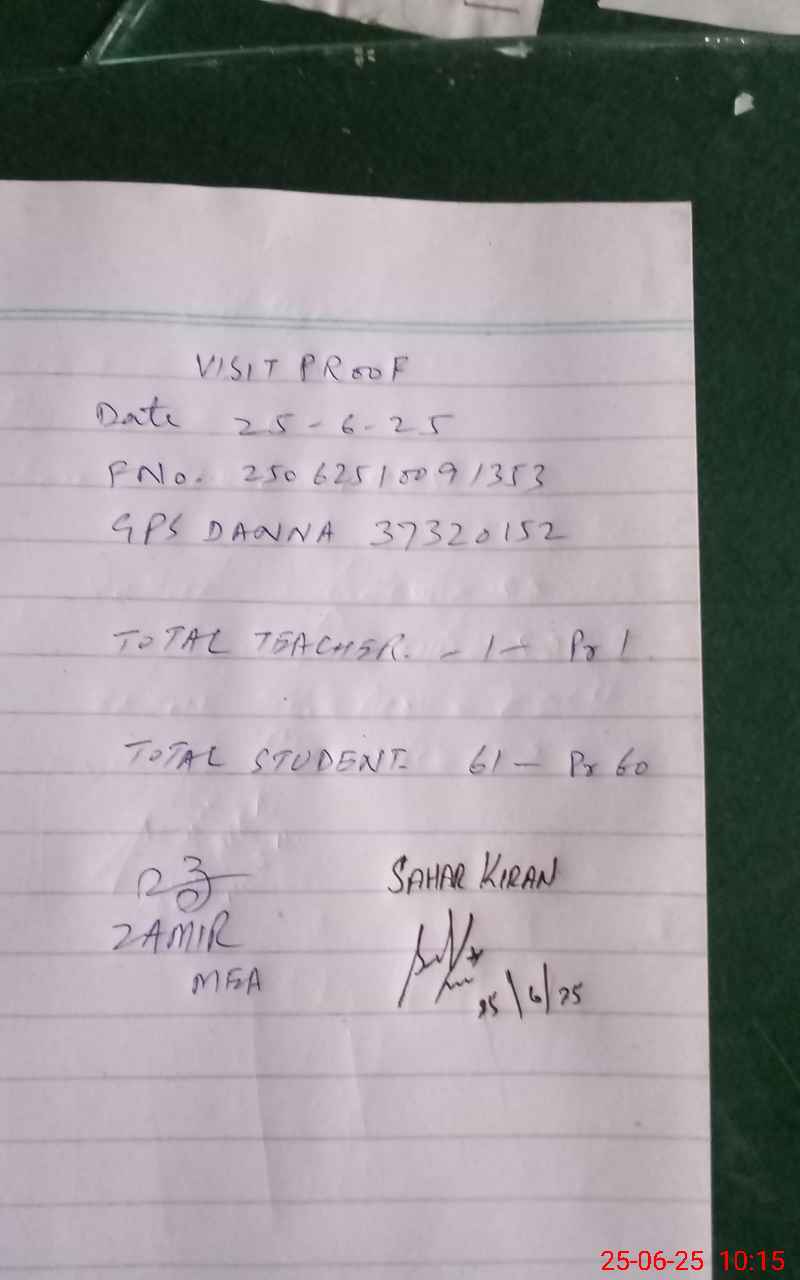 VISIT PROOF
Date 25-6-25
FNo. 25062510091353
GPS DANNA 37320152
TOTAL TEACHER. - 1 - Pr 1
TOTAL STUDENT- 61 - Pr 60
SAHAR KIRAN
ZAMIR
MEA
25/6/25
25-06-25 10:15